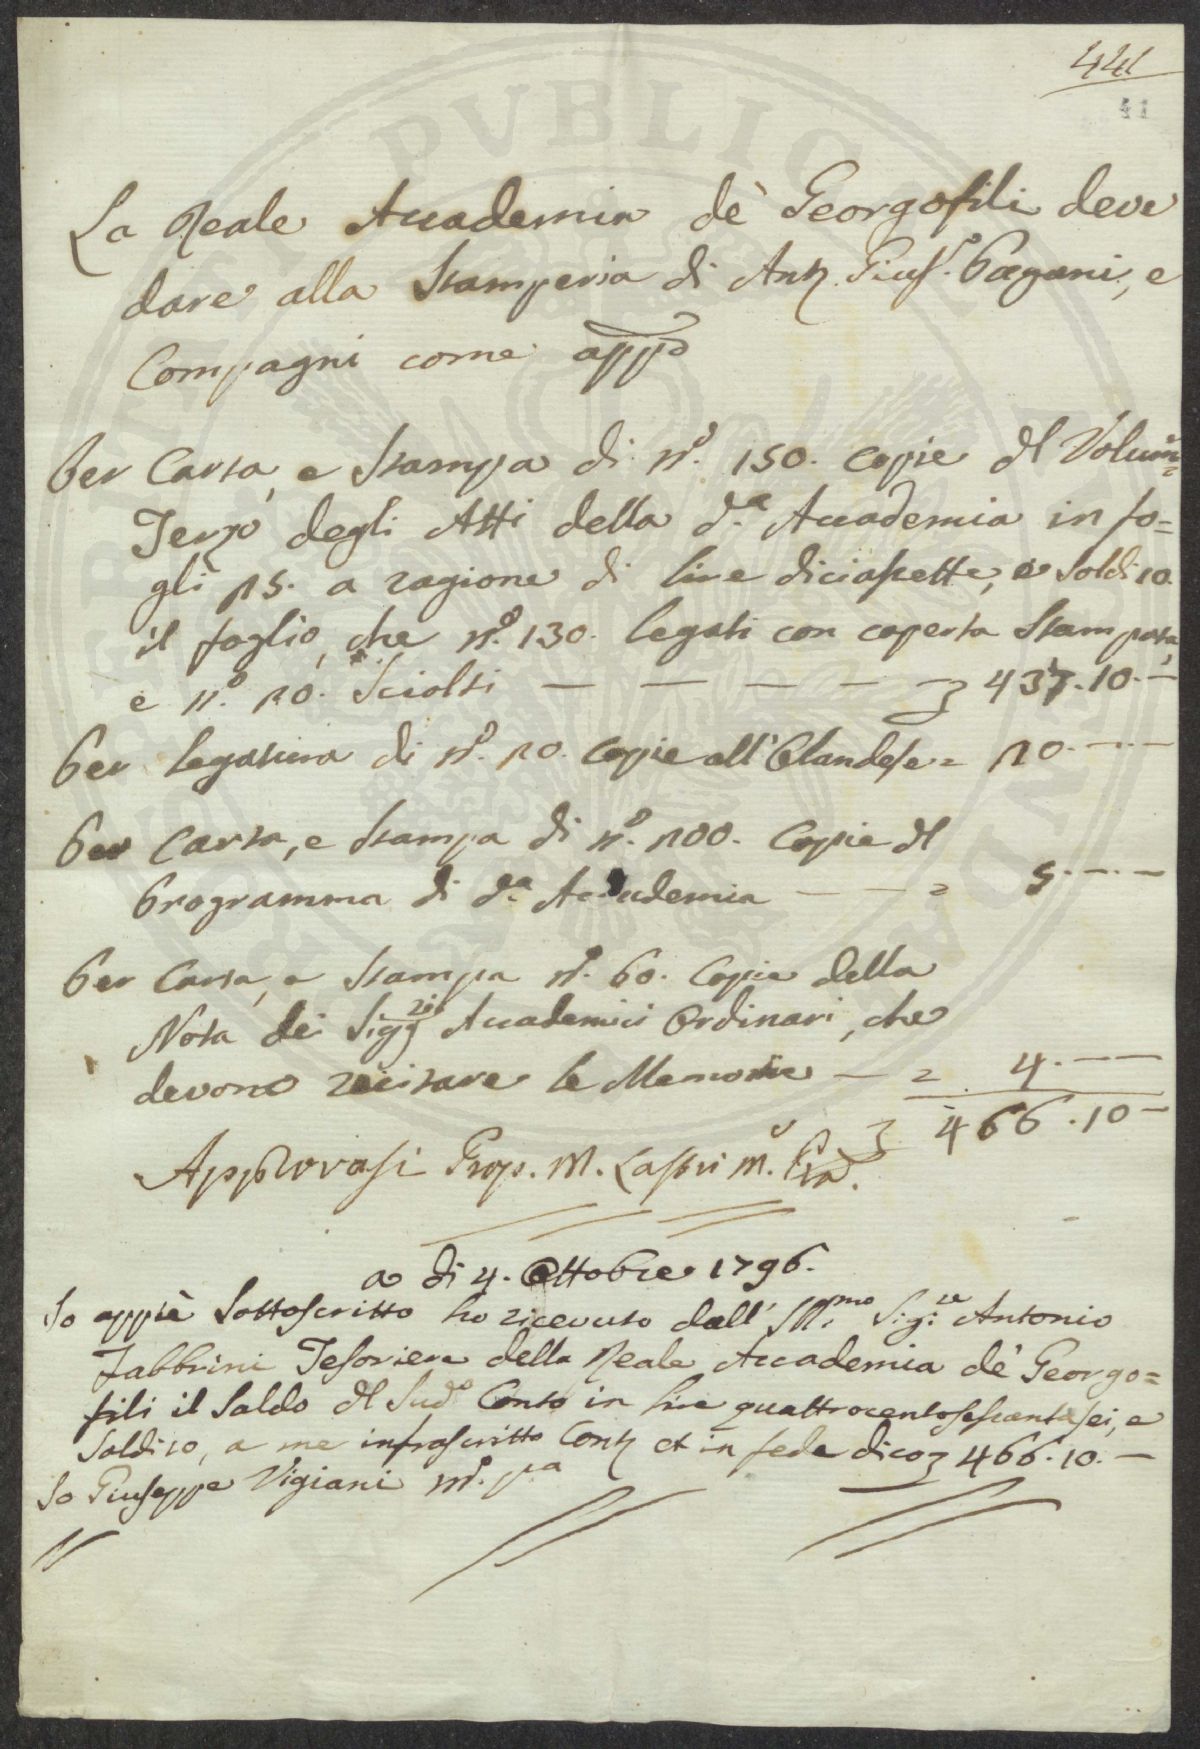 441
41
La Reale Accademia de' Georgofili deve
dare alla Stamperia di Ant. Gius.e Pagani, e
Compagni come app.o
Per Carta, e Stampa di n.o 150. copie dl Volum=
Terzo degli Atti della d.a Accademia in fo=
gli 25. a ragione di lire diciassette, e soldi 10.
il foglio, che n.o 130. legati con coperta Stampata,
e n.o 20. Sciolti — — — — — 437.10.—
Per legatura di n.o 20. Copie all'Olandese = 20.——
Per Carta, e Stampa di n.o 200. Copie dl
Programma di d.a Accademia — — = 5.——
Per Carta, e Stampa n.o 60. Copie della
Nota dei Sigg.ri Accademici Ordinari, che
devono recitare le Memorie — = 4.——
466.10—
Approvasi Prop. M. Lastri
a di 4. Ottobre 1796.
Io appiè Sottoscritto ho ricevuto dall' Ill.mo Sig.re Antonio
Fabbrini Tesoriere della Reale Accademia de' Georgo=
fili il Saldo dl Sud.o Conto in lire quattrocentosessantasei, e
Soldi 10, a me infrascritto Cont. et in fede dico 466.10.—
Io Giuseppe Vigiani m.o pa